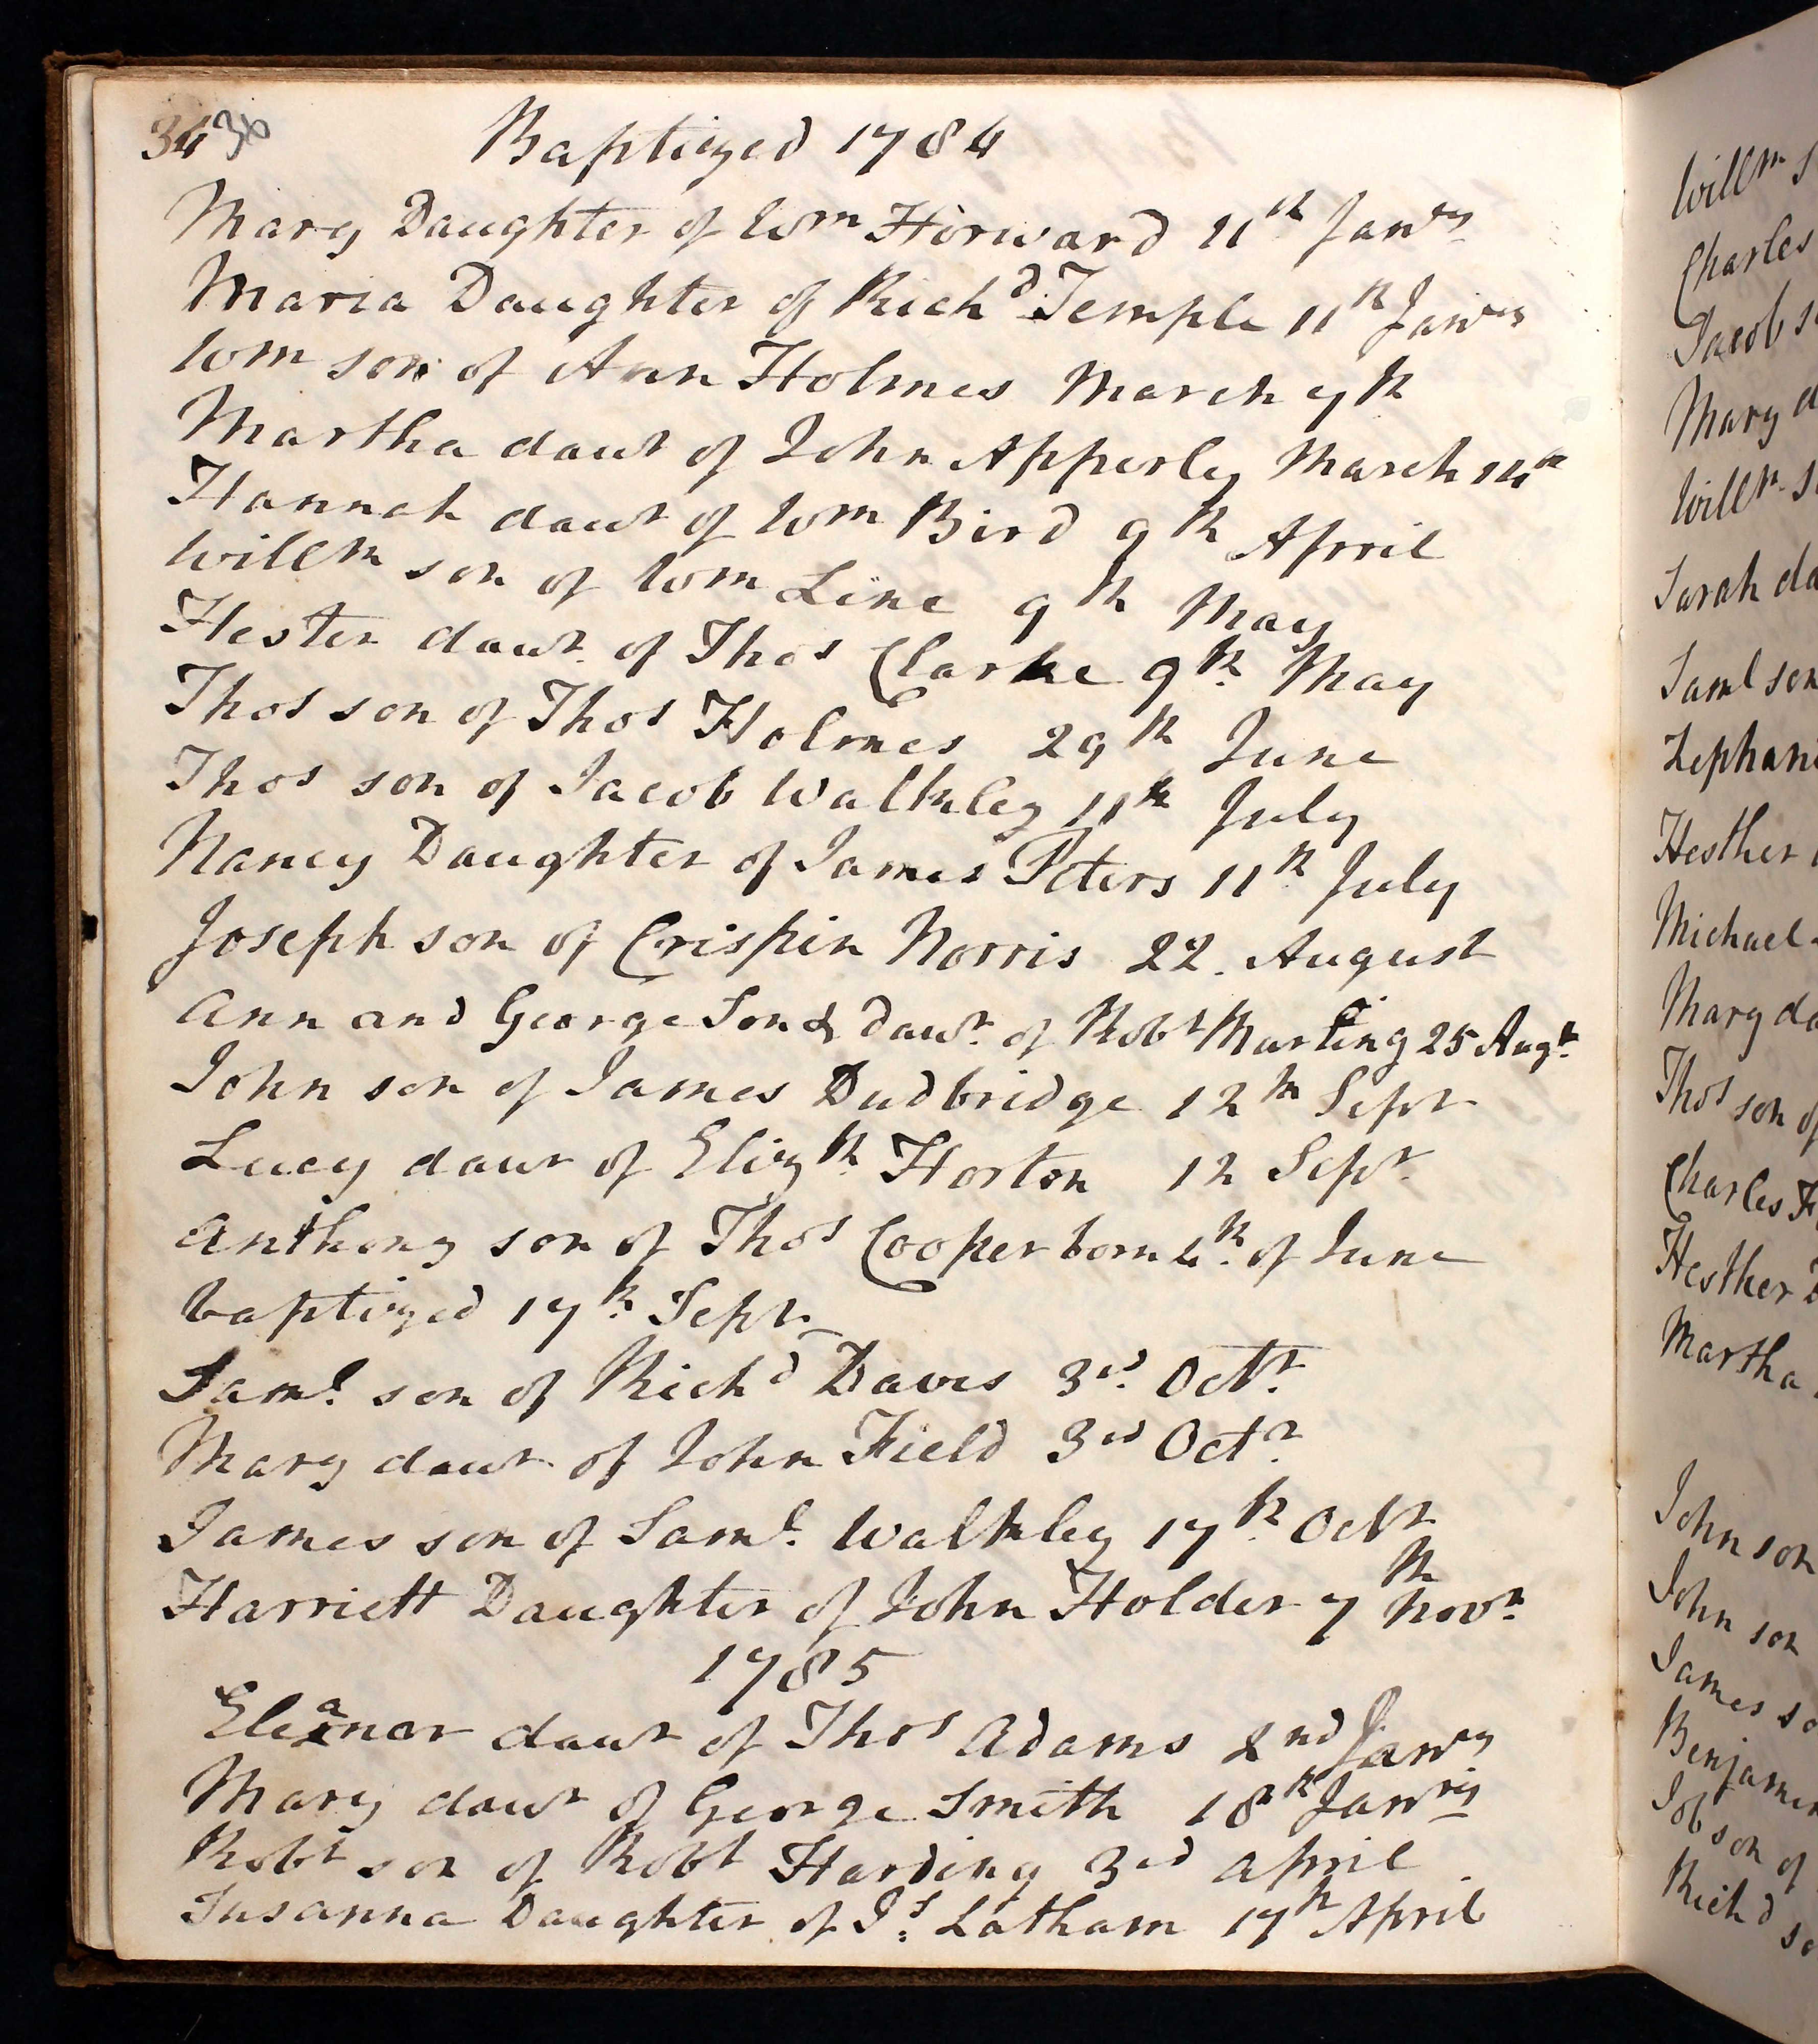 34 36
Baptized 1784
Mary Daughter of Wm Horward 11th Janry
Maria Daughter of Richd Temple 11th Janry
Wm son of Ann Holmes March 7th
Martha daur of John Apperley March 14th
Hannah daur of Wm Bird 9th April
Willm son of Wm Line 9th May
Hester daur of Thos Clarke 9th May
Thos son of Thos Holmes 29th June
Thos son of Jacob Walkley 11th July
Nancy Daughter of James Peters 11th July
Joseph son of Crispin Norris 22. August
Ann and George Son & daur of Robt Marting 25 Augt
John son of James Dudbridge 12th Sepr
Lucy daur of Elizth Horton 12 Sepr
Anthony son of Thos Cooper born 4th of June
baptized 17th Sepr
Saml son of Richd Daves 3rd Octr
Mary daur of John Field 3rd Octr
James son of Saml Walkley 17th Octr
Harriett Daughter of John Holder 7th Novr
1785
Eleanor daur of Thos Adams 2nd Janry
Mary daur of George Smith 18th Janry
Robt son of Robt Harding 3rd April
Susanna Daughter of Js Latham 17th April
Willm S
Charles
Jacob s
Mary d
Willm S
Sarah da
Saml son
Zephani
Hesther
Michael
Mary da
Thos son of
Charles
Hesther
Martha
John son
John son
James so
Benjamin
Job son of
Richd so